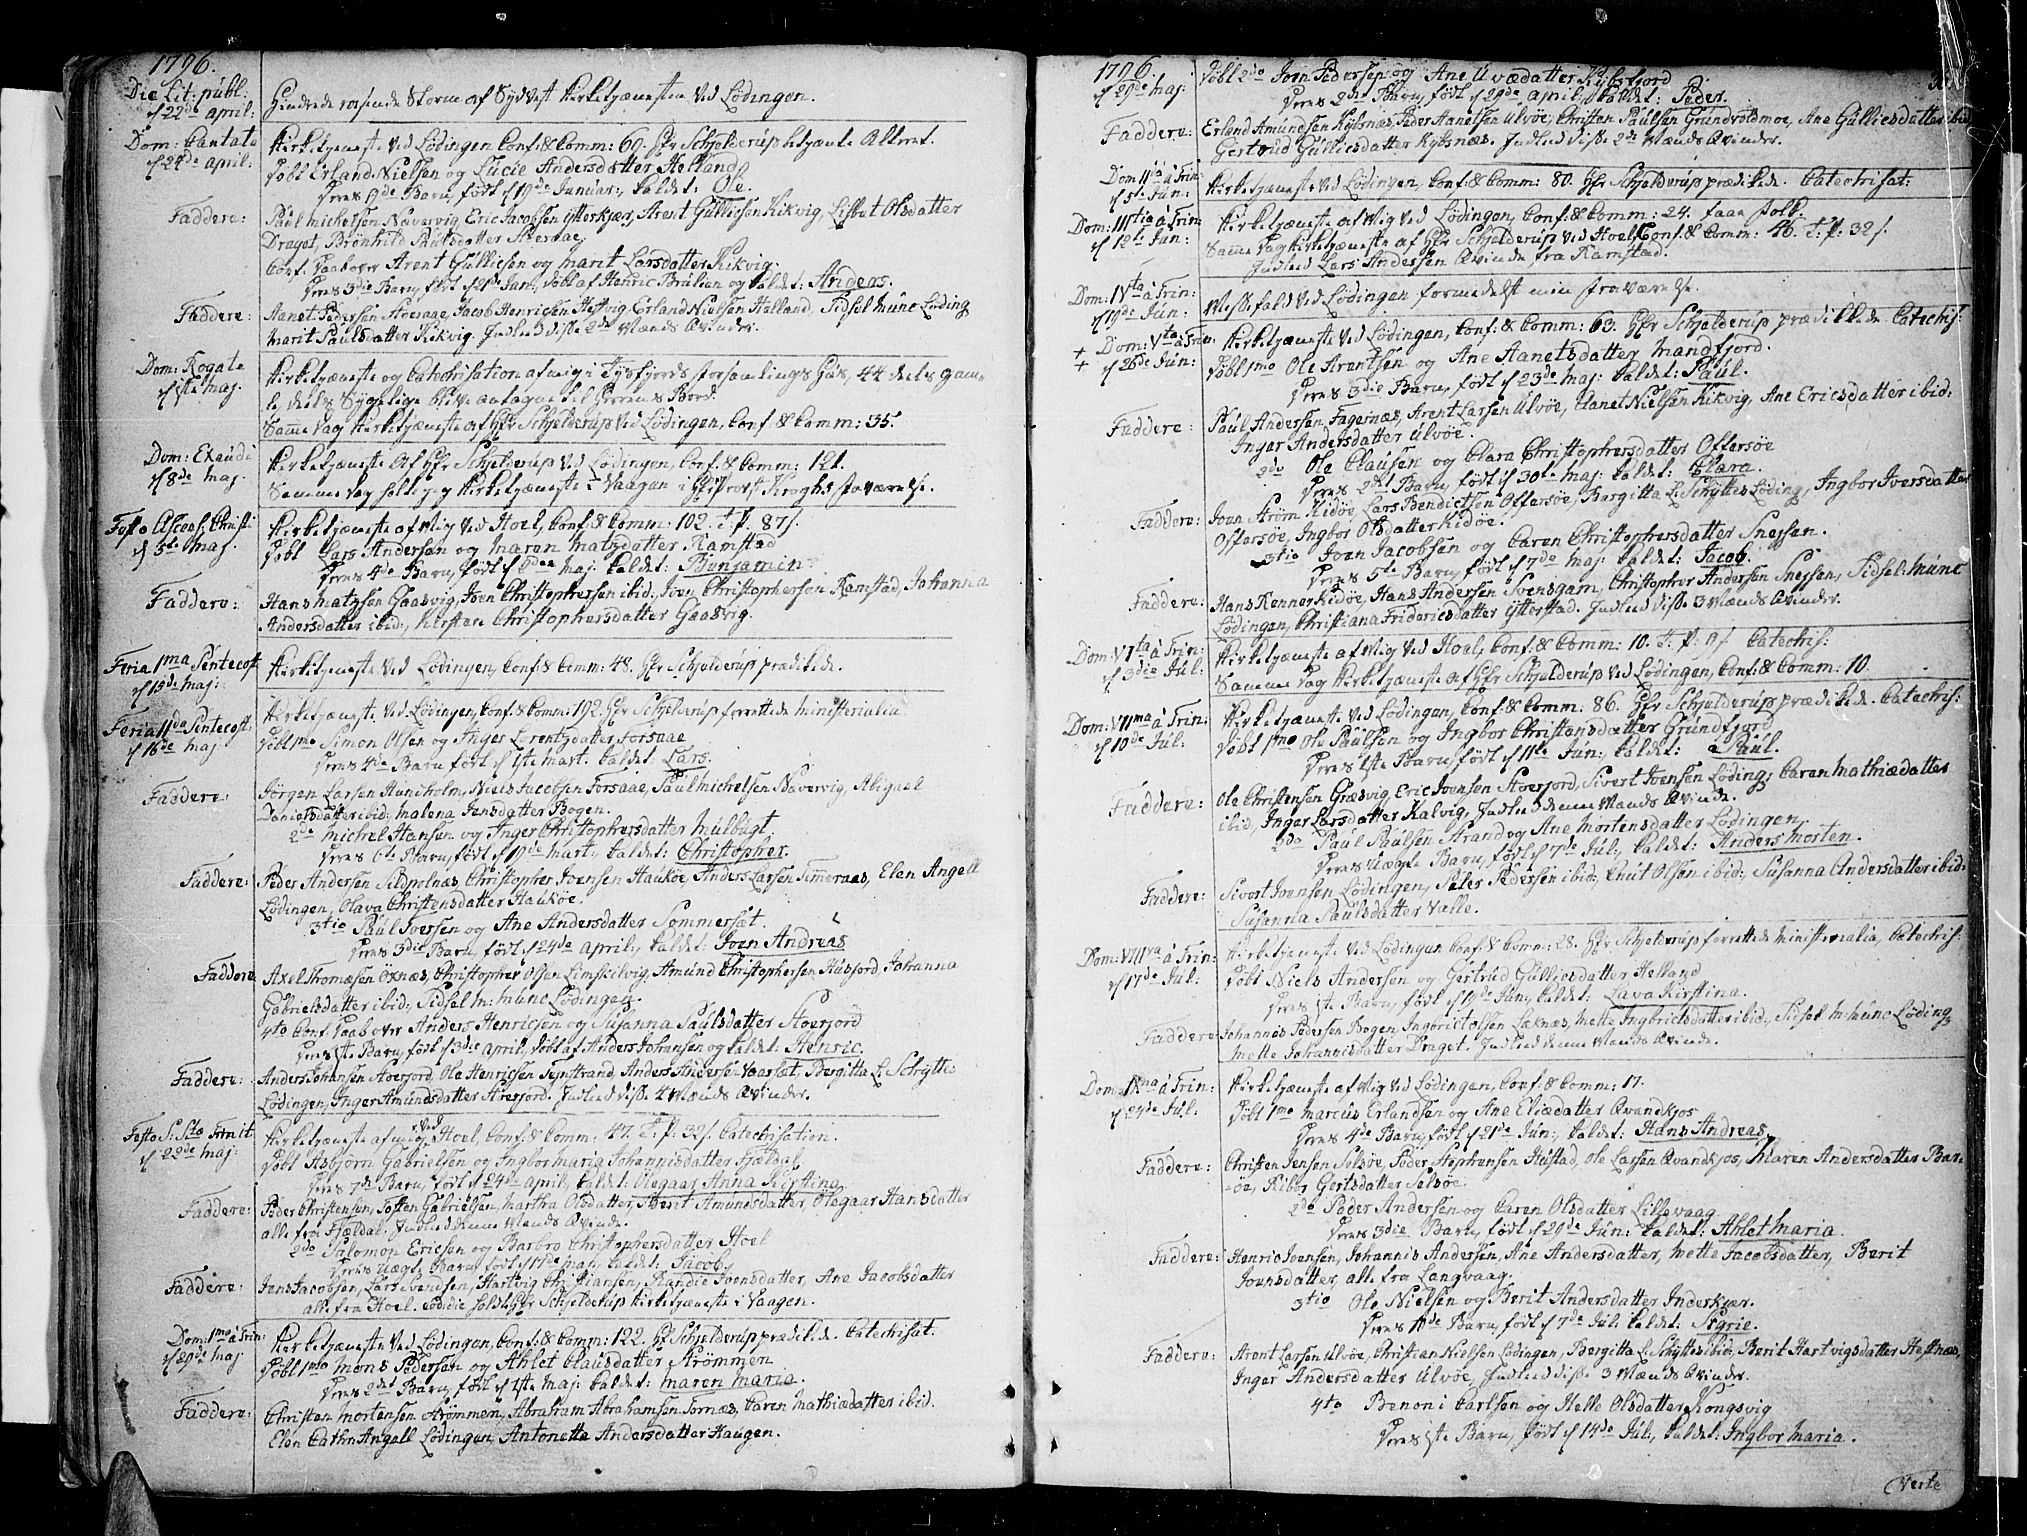 1796.
Die Lit: publ.
d 22de April:
Hindrede rasende Storm af Sydvest Kirketjænesten ved Lødingen.
Dom: Cantate
d 24de April:
Kirketjæneste ved Lødingen Conf: & Comm: 60. Hr Schjelderup betjænte Alteret.
Døbt Erland Nielsen og Lucie Andersdatter Helland
Deres 9de Barn, født d 19de Januar:, kaldet: Ole.
Faddere:
Paul Michelsen Navervig, Eric Jacobsen Ytterkjær, Arent Gulliesen Kikvig, Lisbet Olsdatter
Draget, Brønhild Paulsdatter Storaae.
Conf. Daab over Arent Gulliesen og Marit Larsdatter Kikvig.
Deres 3die Barn, født d 21de Jan:, døbt af Henric Brulien og kaldet: Andeas.
Faddere:
Aanet Pedersen Storaae, Jacob Henricsen Hestvig, Erland Nielsen Helland, Sidsel Munc Løding
Marit Paulsdatter Kikvig. Indled disse 2de Mænds Qvinder.
Dom: Rogate
d 1ste Maj.
Kirketjæneste og Catechisation af mig i Tysfjords Forsamlings Hus, 44 deels gam-
le, deels Sygelige bleve antagne til Herrens Bord.
Samme Dag Kirketjæneste af Hr Schjelderup ved Lødingen, Conf: & Comm: 35.
Dom: Exaudi
d 8de Maj.
Kirketjæneste af Hr Schjelderup ved Lødingen, Conf: & Comm: 121.
Samme Dag holdt jeg Kirketjæneste i Vaagan i Hr Provst Kroghs Fraværelse.
Festo Ascens: Christi
d 5te Maj.
Kirketjæneste af Mig ved Hoel, Conf: & Comm: 102. T. P. 87 s.
Døbt Lars Andersen og Maren Matzdatter Ramstad
Deres 4de Barn, født d Maj: kaldet: Benjamin.
Faddere:
Hans Matzsen Gaasvig, Joen Christophersen ibid:, Joen Christophersen Ramstad, Johanna
Andersdatter ibid:, Kirsten Christophersdatter Gaasvig.
Feria 1ma Pentecost
d 15de Maj:
Kirketjæneste ved Lødingen, Conf: & Comm: 48. Hr Schjelderup prædikede.
Feria 11da Pentecost:
d 16de Maj:
Kirketjæneste ved Lødingen, Conf: & Comm: 192. Hr Schjelderup forrettede ministerialia
Døbt 1mo Simon Olsen og Inger Lorentzdatter Forsaae
Deres 4de Barn født d 1ste Mart. kaldet: Lars.
Faddere:
Jørgen Larsen Hundholm, Niels Jacobsen Forsaae, Paul Michelsen Navervig, Abigael
Danielsdatter ibid: Malena Jensdatter Bogen.
2do Michel Hansen og Inger Christophersdatter Mulbugt
Deres 6te Barn, født d 19de Mart:, kaldet: Christopher.
Faddere:
Peder Andersen Sildpolnæs, Christopher Joensen Haukøe, Anders Larsen Timmeraas, Elen Angell
Lødingen, Olava Christensdatter Haukøe.
3tio Paul Iversen og Ane Andersdatter Sommerset.
Deres 3die Barn, født d 24de April:, kaldet: Joen Andreas
Faddere
Axel Thomæsen Øxnæs, Christopher Olsen Limskilvig, Amund Christophersen Husjord, Johanna
Gabrielsdatter ibid:, Sidsel M: Munc Lødingen.
4to Conf. Daab over Anders Henricsen og Susanna Paulsdatter Storjord
Deres 1ste Barn, født d 3die April, døbt af Anders Johansen og kaldet: Henric.
Faddere:
Anders Johansen Storjord, Ole Henricsen Fynstrand, Anders Anderse- Vaarsæt, Bergitta L. Schytte
Lødingen, Inger Amundsdatter Storjord. Indled disse 4 Mænds Qvinder.
Festo S: Stæ Trinit
d 22de Maj:
Kirketjæneste af mig ved Hoel, Conf: & Comm: 47. T. P. 32 s. Catechisation.
Døbt Asbjørn Gabrielsen og Ingbor Maria Johannisdatter Fjældal
Deres 7de Barn, født d 24de April, kaldet: Olegaar Anna Kirstina
Faddere:
Peder Christensen, Tosten Gabrielsen, Martha Olsdatter, Marit Amundsdatter, Olegaar Hansdatter
alle fra Fjældal. Indled denne Mands Qvinde.
2do Salomon Ericsen og Barbro Christophersdatter Hoel
Deres Uægte Barn, født d 17de Maj, kaldet: Jacob.
Faddere:
Jens Jacobsen, Lars Svendsen, Hartvig Christiansen, Randie Joensdatter, Ane Jacobsdatter
alle fra Hoel. Eodie holdt Hr Schjelderup Kirketjæneste i Vaagen.
Dom: 1ma à Trin:
d 29de Maj
Kirketjæneste ved Lødingen, Conf: & Comm: 122. Hr Schjelderup prædikede. Catechisat.
Døbt 1mo Mons Pedersen og Ahlet Clausdatter Strømmen
Deres 2det Barn, født d 1ste Maj: kaldet: Maren Maria.
Faddere:
Christen Mortensen Strømmen, Abraham Abrahamsen Fornæs, Caren Mathiædatter ibid.
Elen Cathr: Angell Lødingen, Antonetta Andersdatter Haugen.
1796.
d 29de Maj:
Døbt 2do Joen Pedersen og Ane Uvædatter Kybsfjord
Deres 2det Barn, født d 29de April, kaldet: Peder.
Faddere:
Erland Amundsen Kybsnæs, Peder Aanetsen Ulvøe, Christen Paulsen Grundvoldmoe, Ane Gulliesdatter ibid
Gertrud Gulliesdatter Kybsnæs. Indled disse 2de Mænds Qvinder.
Dom 11da à Trin:
d 5te Jun:
Kirketjæneste ved Lødingen, Conf: & Comm: 80. Hr Schjelderup prædikede. Catechisat:
Dom: 111tia à Trin:
d 12te Jun:
Kirketjæneste af Mig ved Lødingen, Conf: & Comm: 24. faae Folk.
Samme Dag Kirketjæneste af Hr Schjelderup ved Hoel, Conf: & Comm: 46. T. P. 32 s.
Indled Lars Andersen Qvinde fra Ramstad.
Dom: 1Vta à Trin:
d 19de Jun:
Messefald ved Lødingen formedelst min Fraværelse.
Dom: Vta à Trin:
d 26de Jun:
Kirketjæneste ved Lødingen, Conf: & Comm: 63. Hr Schjelderup prædikede Catechis:
Døbt 1mo Ole Arentsen og Ane Aanetsdatter Mandfjord.
Deres 3die Barn, født d 23de Maj: kaldet: Paul.
Faddere:
Paul Andersen Fagernæs, Arent Larsen Ulvøe, Aanet Nielsen Kikvig, Ane Ericsdatter ibid:
Inger Andersdatter Ulvøe.
2do Ole Clausen og Clara Christophersdatter Offersøe
Deres 2det Barn, født d 30te Maj: kaldet: Clara.
Faddere:
Joen Strøm Kidøe, Lars Bendictsen Offersøe, Bergitta L: Schytte Løding, Ingbor Iversdatter
Offersøe, Ingbor Olsdatter Kidøe.
3tio Joen Jacobsen og Caren Christophersdatter Snessen.
Deres 5te Barn, født d 7de Maj: kaldet: Jacob.
Faddere:
Hans Renner Kidøe, Hans Andersen Svensgam, Christopher Andersen Snessen, Sidsel: Munc
Lødingen, Christiana Fridericsdatter Ytterstad. Indled disse 3 Mænds Qvinder.
Dom: V1ta à Trin:
d 3die Jul:
Kirketjæneste af Mig ved Hoel, Conf: & Comm: 10. T. P. Catechis:
Samme Dag Kirketjæneste af Hr Schjelderup ved Lødingen, Conf: & Comm: 10.
Dom: V11ma à Trin:
d 10de Jul:
Kirketjæneste ved Lødingen, Conf: & Comm: 86. Hr Schjelderup prædikede. Catechis:
Døbt 1mo Ole Paulsen og Ingbor Christensdatter Grundfjord
Deres 1ste Barn, født d 11te Jun: kaldet: Paul.
Faddere:
Ole Christensen Græsvig, Eric Joensen Storjord, Sivert Joensen Løding: Caren Mathiædatter
ibid, Inger Larsdatter Kalvig, Indled denne Mands Qvinde.
2do Paul Paulsen Strand og Ane Mortensdatter Lødingen
Deres Uægte Barn, født d 7de Jul:, kaldet: Anders Morten.
Faddere:
Sivert Joensen Lødingen, Peter Pedersen ibid:, Knut Olsen ibid:, Susanna Andersdatter ibid:
Susanna Paulsdatter Valle.
Dom: V111va à Trin:
d 17de Jul:
Kirketjæneste ved Lødingen Conf: & Comm: 28. Hr Schjelderup forrettede ministerialia, Catechis:
Døbt Niels Andersen og Gertrud Gulliesdatter Helland
Deres 1ste Barn, født d 19de Jun:, kaldet: Lava Kirstina.
Faddere
Johannes Pedersen Bogen, Ingbrict Olsen Laknæs, Mette Ingbrictsdatter ibid:, Sidsel M: Munc Løding
Mette Johannisdatter Draget. Indled denne Mands Qvinde.
Dom: 1Xna à Trin:
d 24de Jul:
Kirketjæneste af Mig ved Lødingen, Conf: & Comm: 17.
Døbt 1mo Marcus Erlandsen og Ane Eliædatter Qvandkjos
Deres 4de Barn, født d 21de Jun:, kaldet: Hans Andreas.
Faddere:
Christen Jensen Selsøe, Peder Stephensen Hustad, Ole Larsen Qvandkjos, Maren Andersdatter Bar-
-øe, Kibor Gertsdatter Selsøe.
2do Peder Andersen og Caren Olsdatter Lillevaag
Deres 3die Barn, født d 29de Jun: kaldet: Ahlet Maria.
Faddere:
Henric Joensen, Johannis Andersen, Ane Andersdatter, Mette Jacobsdatter, Berit
Joensdatter, alle fra Langvaag.
3tio Ole Nielsen og Berit Andersdatter Inderkjær.
Deres 10de Barn, født d 7de Jul: kaldet: Sigrie.
Faddere:
Arent Larsen Ulvøe, Christian Nielsen Lødingen, Bergitta L. Schytte ibid: Berit Hartvigsdatter Hestnæs,
Inger Andersdatter Ulvøe, Indled disse 3 Mænds Qvinder.
4to Benoni Carlsen og Helle Olsdatter Kongsvig
Deres 1ste Barn, født d 14de Jul:, kaldet: Ingbor Maria.
Verte